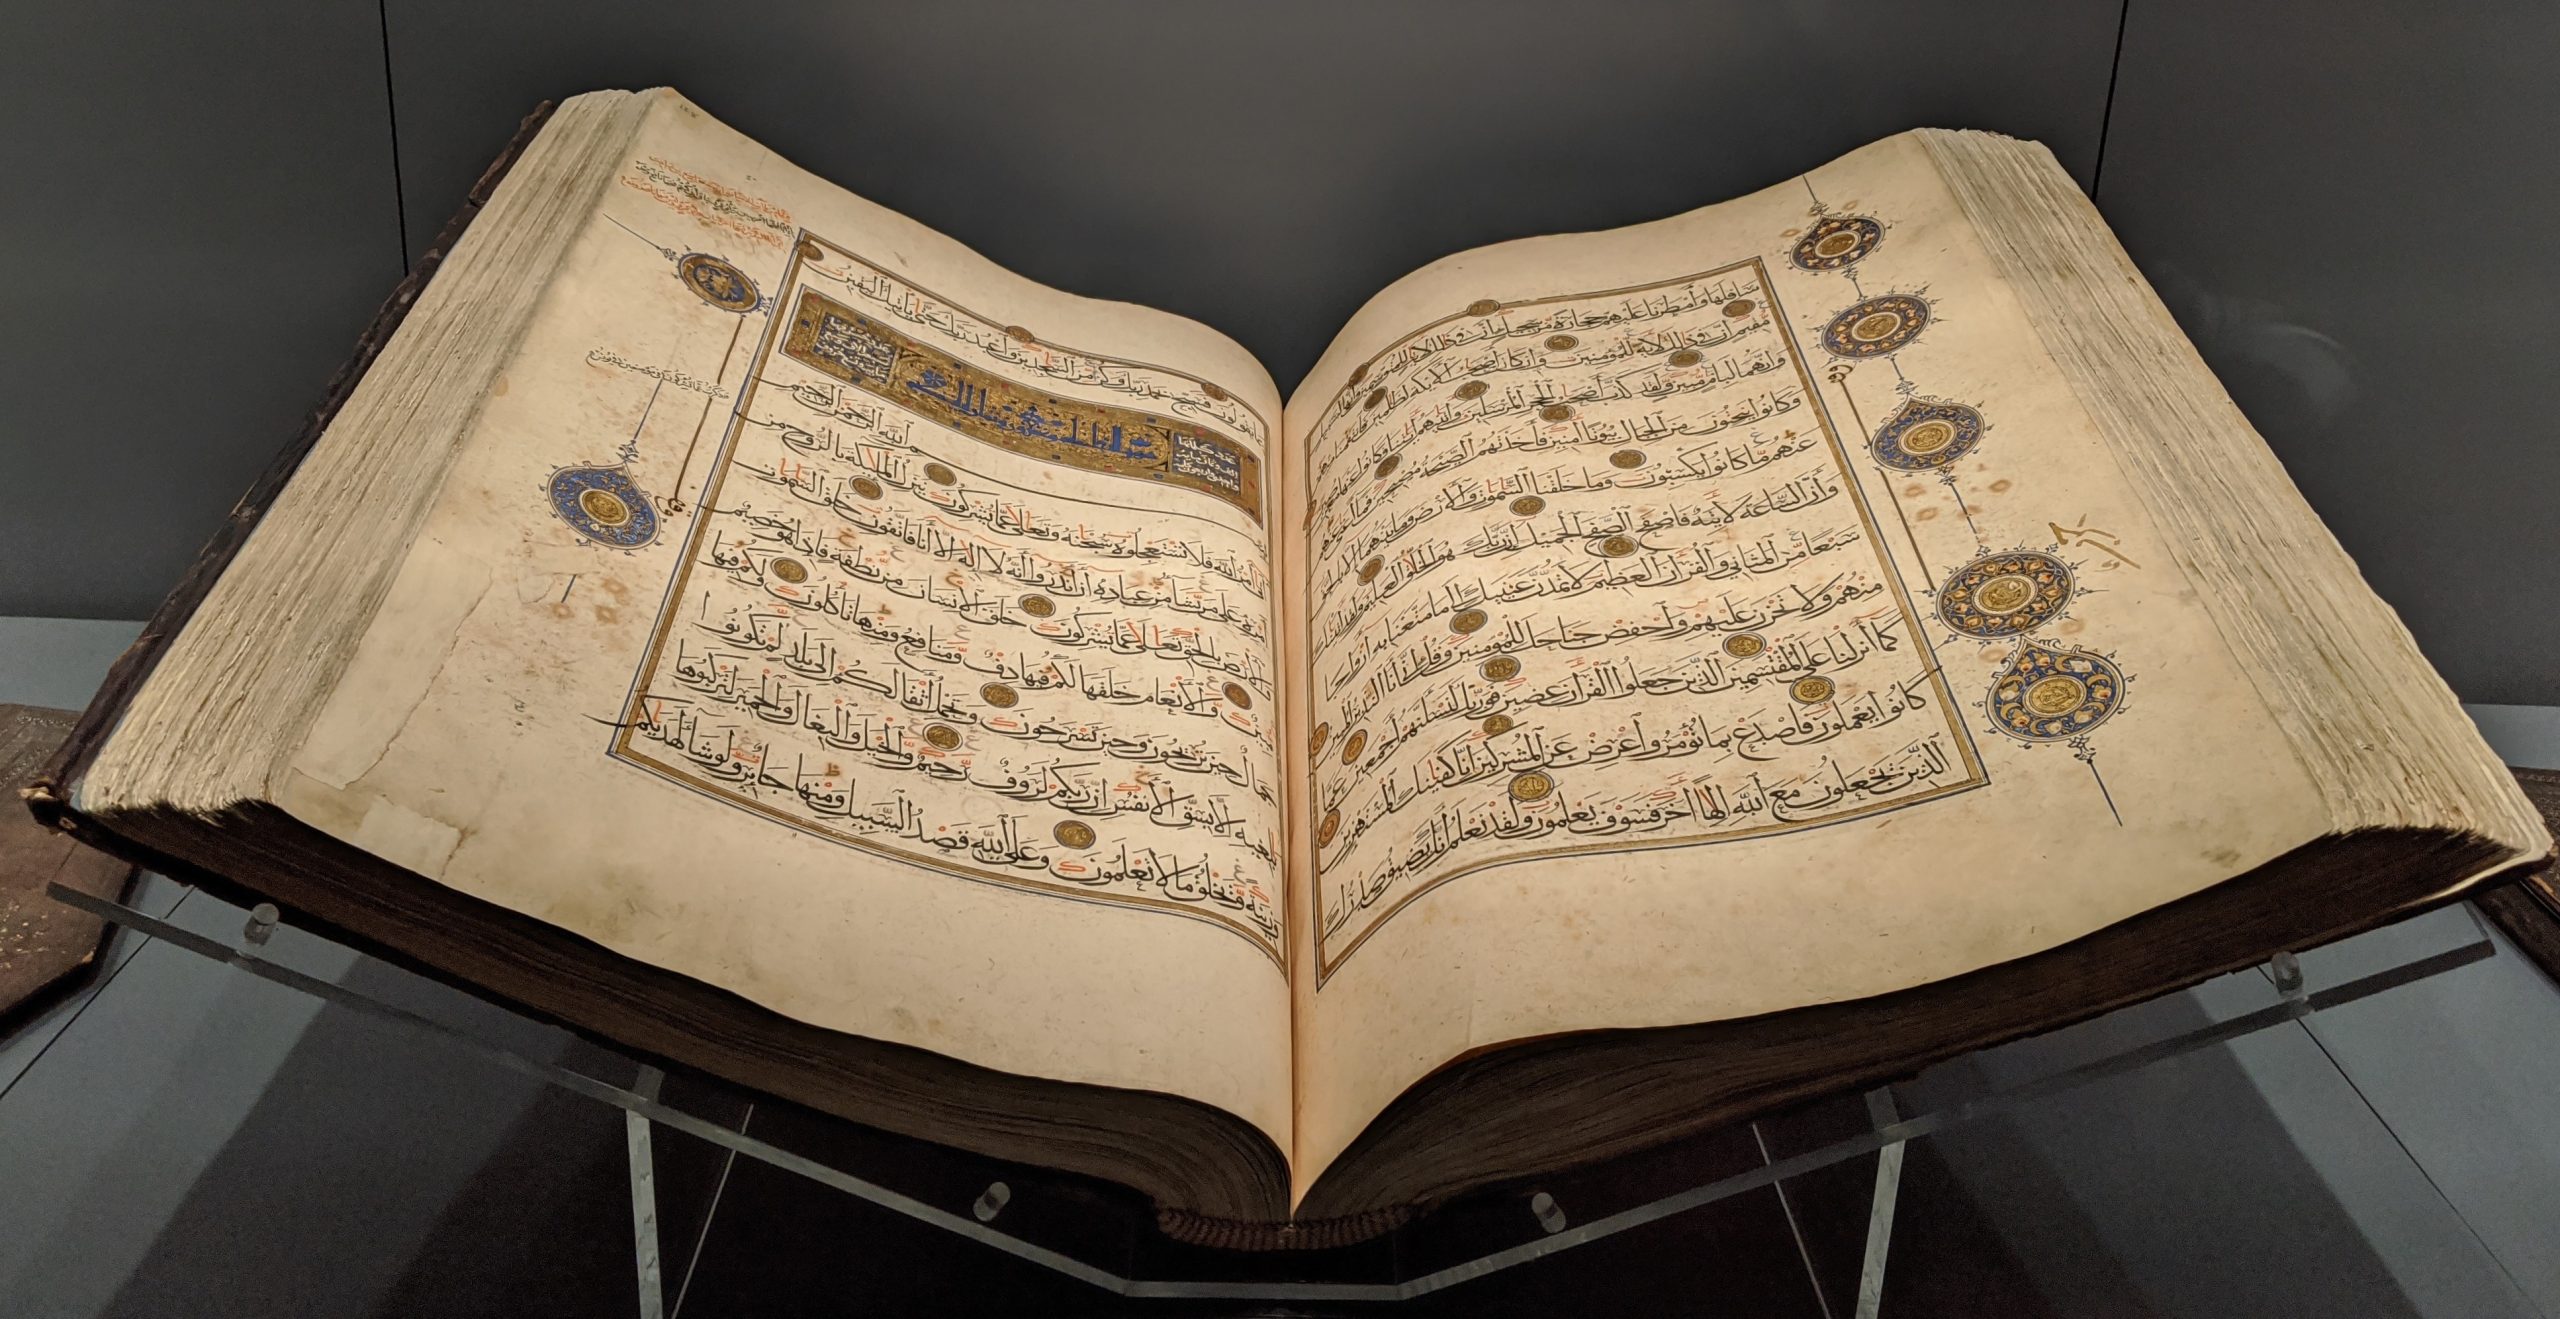 سافلها وأمطرنا عليهم حجارة من سجيل إن في ذلك لآيات للمتوسمين وإنها لبسبيل
مقيم إن في ذلك لآية للمؤمنين وإن كان أصحاب الأيكة لظالمين فانتقمنا منهم
وإنهما لبإمام مبين ولقد كذب أصحاب الحجر المرسلين وآتيناهم آياتنا فكانوا عنها معرضين
وكانوا ينحتون من الجبال بيوتا آمنين فأخذتهم الصيحة مصبحين فما أغنى
عنهم ما كانوا يكسبون وما خلقنا السموات والأرض وما بينهما إلا بالحق
وأن الساعة لآتية فاصفح الصفح الجميل إن ربك هو الخلاق العليم ولقد آتيناك
سبعا من المثاني والقرآن العظيم لا تمدن عينيك إلى ما متعنا به أزواجا
منهم ولا تحزن عليهم واخفض جناحك للمؤمنين وقل إني أنا النذير المبين
كما أنزلنا على المقتسمين الذين جعلوا القرآن عضين فوربك لنسئلنهم أجمعين عما
كانوا يعملون فاصدع بما تؤمر وأعرض عن المشركين إنا كفيناك المستهزئين
الذين يجعلون مع الله إلها آخر فسوف يعلمون ولقد نعلم أنك يضيق صدرك
بما يقولون فسبح بحمد ربك وكن من الساجدين واعبد ربك حتى يأتيك اليقين
بسم الله الرحمن الرحيم
أتى أمر الله فلا تستعجلوه سبحانه وتعالى عما يشركون ينزل الملائكة بالروح من
أمره على من يشاء من عباده أن أنذروا أنه لا إله إلا أنا فاتقون خلق السموات
والأرض بالحق تعالى عما يشركون خلق الإنسان من نطفة فإذا هو خصيم
مبين والأنعام خلقها لكم فيها دفء ومنافع ومنها تأكلون ولكم فيها
جمال حين تريحون وحين تسرحون وتحمل أثقالكم إلى بلد لم تكونوا
بالغيه إلا بشق الأنفس إن ربكم لرؤف رحيم والخيل والبغال والحمير لتركبوها
وزينة ويخلق ما لا تعلمون وعلى الله قصد السبيل ومنها جائر ولو شاء لهديكم